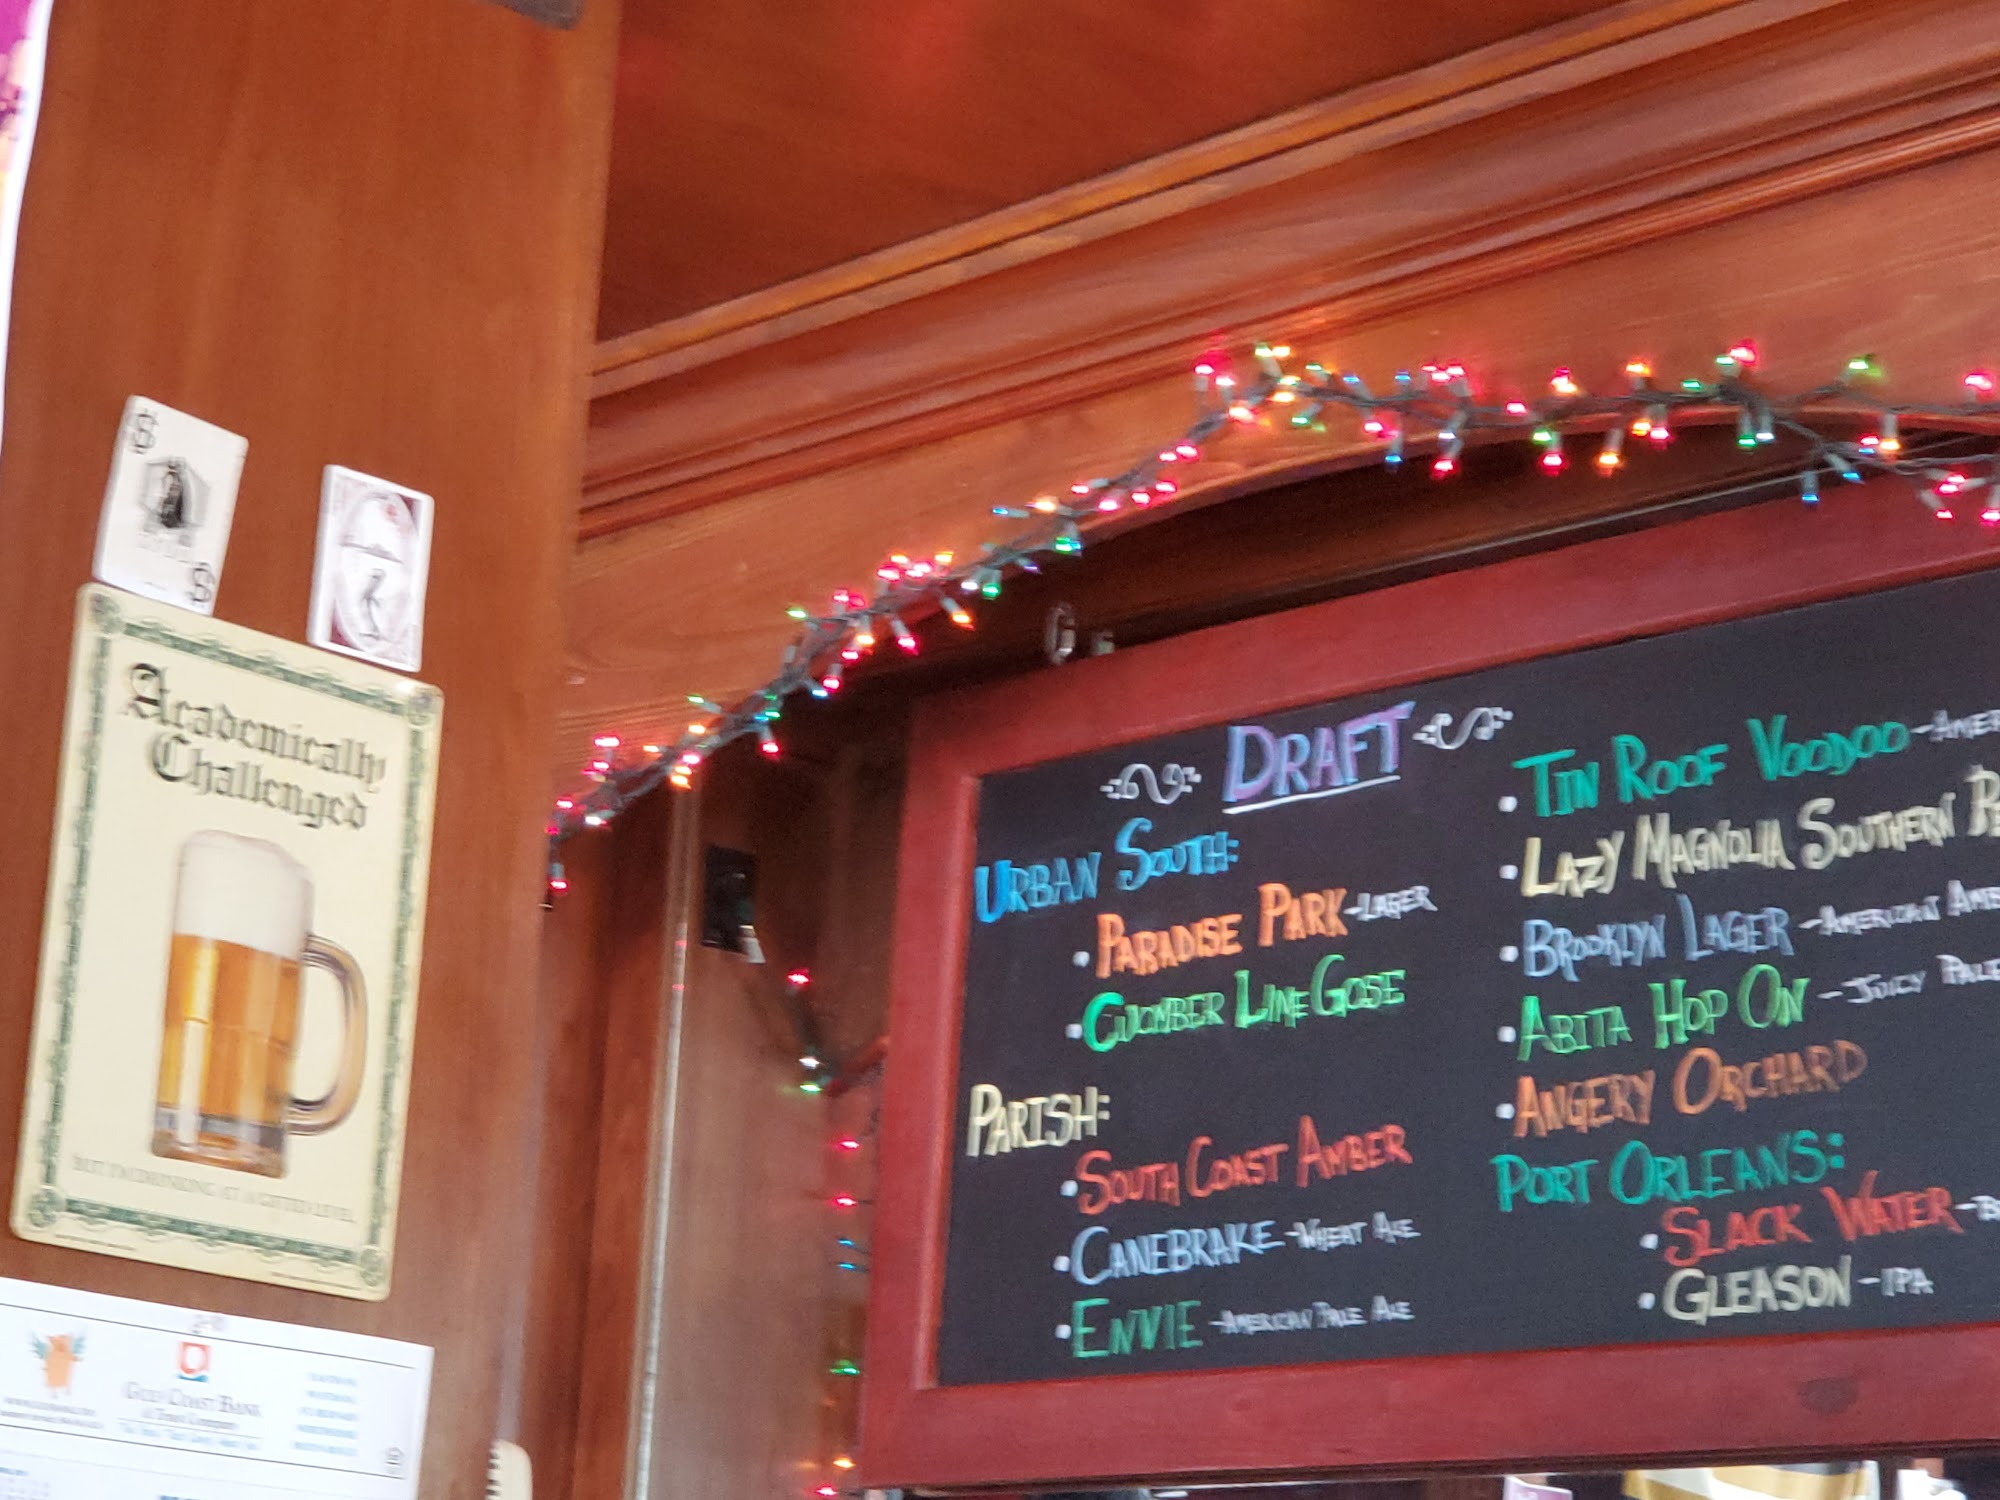 $
$
Academically
Challenged
BUT I'M DRINKING AT A GIFTED LEVEL
GULF COAST BANK
& Trust Company
DRAFT
URBAN SOUTH:
• PARADISE PARK - LAGER
• CUCMBER LIME GOSE
PARISH:
• SOUTH COAST AMBER
• CANEBRAKE - WHEAT ALE
• ENVIE - AMERICAN PALE ALE
• TIN ROOF VOODOO - AMER
• LAZY MAGNOLIA SOUTHERN PE
• BROOKLYN LAGER - AMERICAN AMB
• ABITA HOP ON - JUICY PALE
• ANGERY ORCHARD
PORT ORLEANS:
• SLACK WATER - B
• GLEASON - IPA